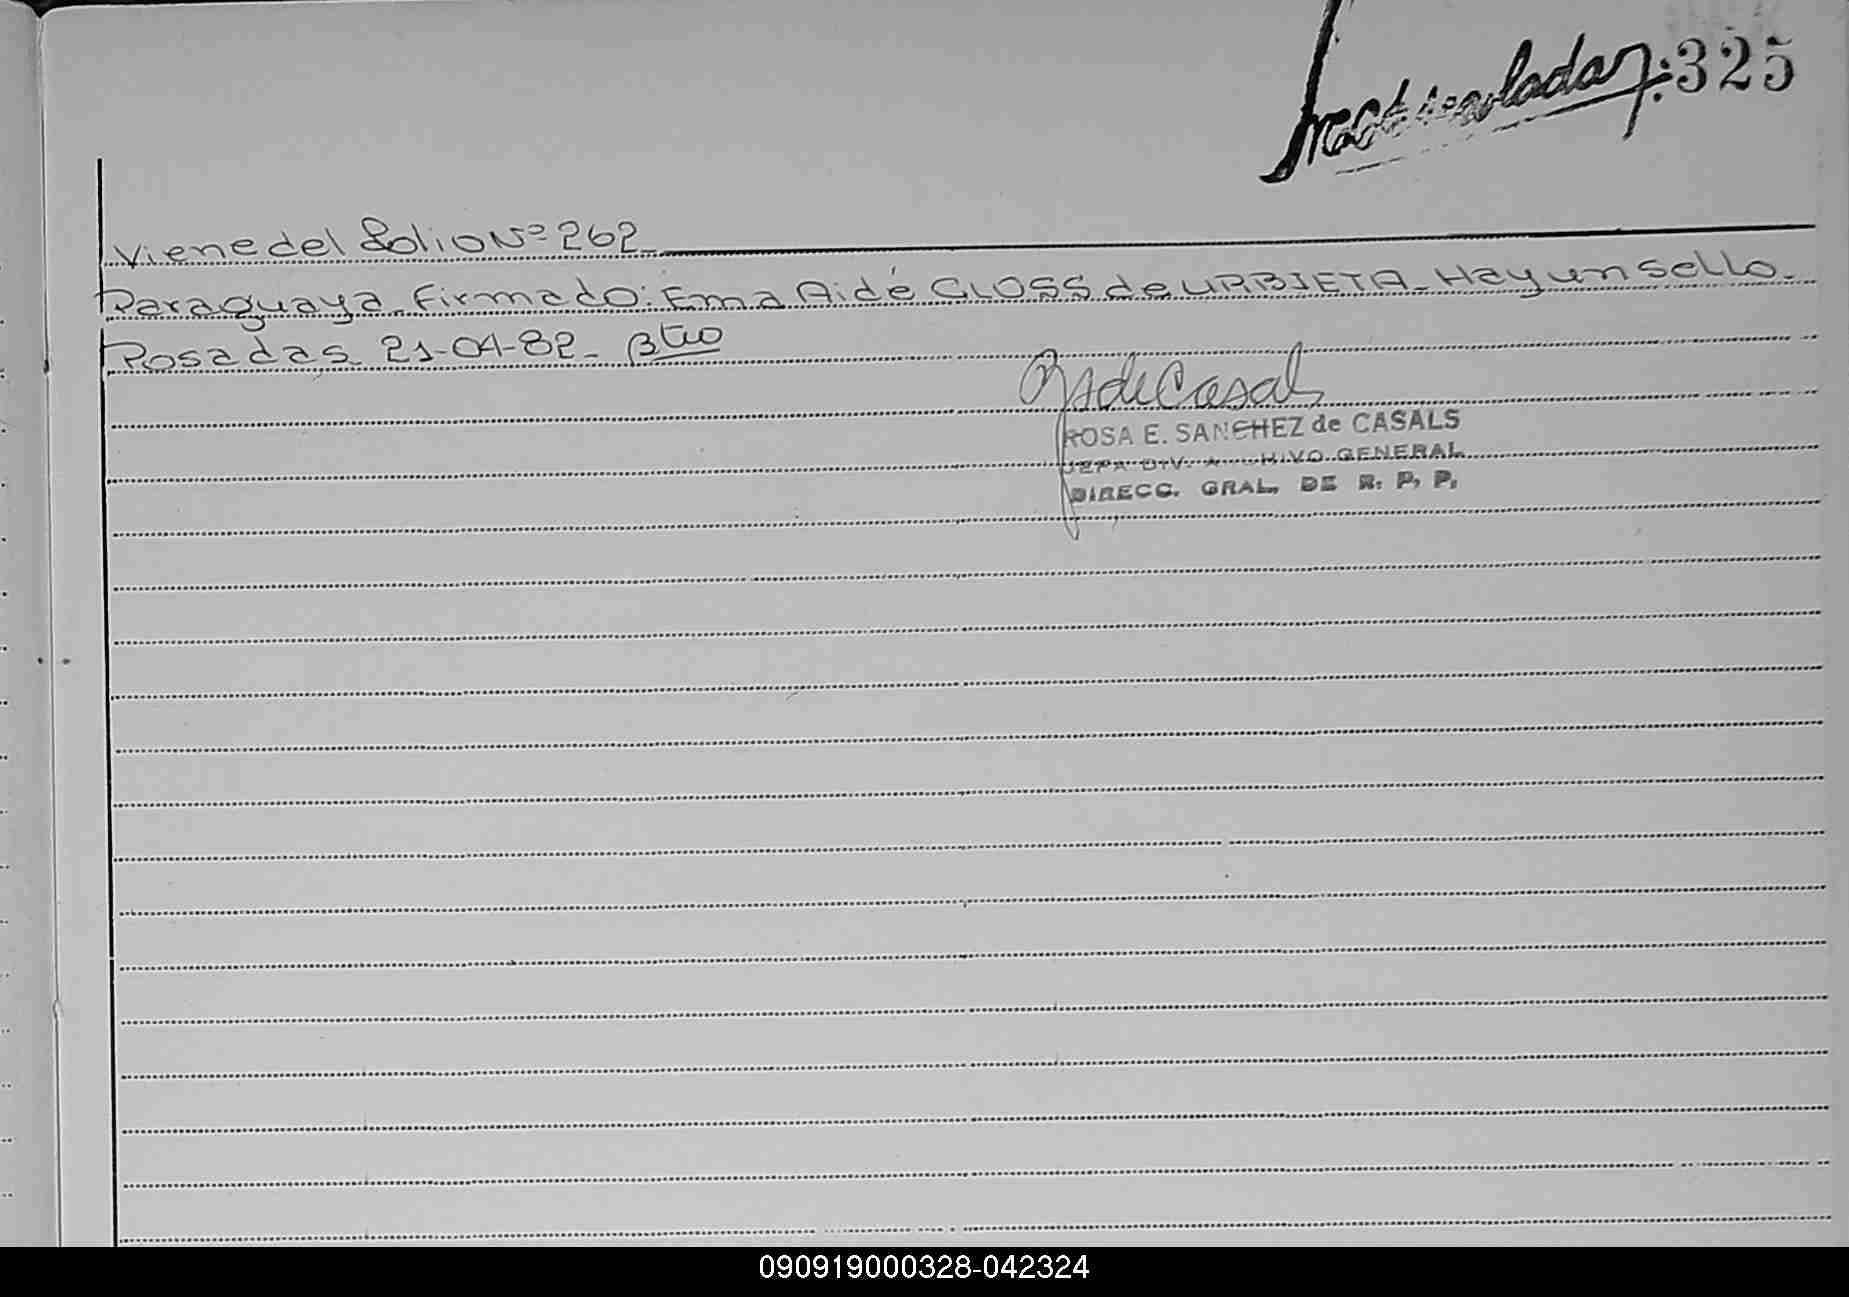 325
Viene del Folio Nº 262_
Paraguaya_ Firmado: Ema Aidé GLOSS de URBIETA_ Hay un sello_
Posadas 21-04-82_
RsdeCasals
ROSA E. SANCHEZ de CASALS
JEFA DIV. ARCHIVO GENERAL
DIRECC. GRAL. DE R. P. P.
090919000328-042324